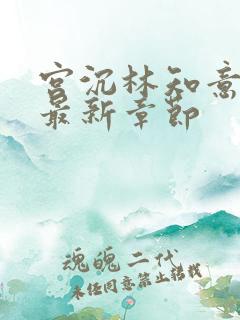 宫沉林知意
最新章节
魂魄二代
未经同意禁止转载